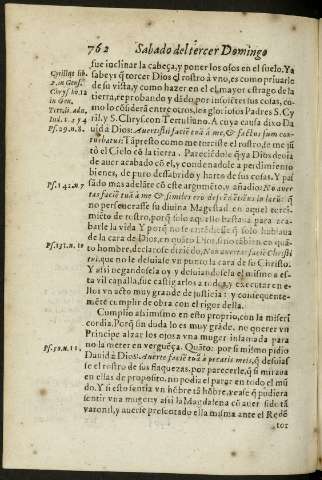 762 Sabado del tercer Domingo
fue inclinar la cabeça, y poner los ojos en el suelo. Ya
Cyrillus lib.
sabeys q̃ torcer Dios el rostro à vno, es como priuarle
2. in Genes.
de su vista, y como hazer en el el mayor estrago de la
Chrys. ho. 12
tierra, reprobando y dãdo por infelices sus cosas, co-
in Gen.
mo lo cõsiderã entre otros, los gloriosos Padres S. Cy
Tertul. adu.
ril, y S. Chrys. con Tertuliano. A cuya causa dixo Da
Iud. 1. 254
uid à Dios: Auertisti faciẽ tuã à me, & factus sum con-
Ps. 29. n. 8.
turbatus: Tã presto como me torciste el rostro, se me jũ
tó el Cielo cõ la tierra. Pareciẽdole q̃ ya Dios deuia
de auer acabado cõ el, y condenadole a perdimiento
bienes, de puro desfabrido y harto de sus cosas. Y pas
Ps. 142. n. 7
sado mas adelãte cõ este argumẽto, y añadio: No auer
tas faciẽ tuã à me & similis ero descẽdẽtibus in lacũ: q̃
no perseuerasse su diuina Magestad en aquel terci-
miẽto de rostro, porq̃ solo aquello bastaua para aca-
barle la vida. Y porq̃ no se entẽdiesse q̃ solo hablaua
de la cara de Dios, en quãto Dios, sino tãbien en quã-
Ps. 131. n. 10
to hombre, declarose diziẽdo, Non auertas faciẽ Christi
tui, que no le desuiasse vn punto la cara de su Christo.
Y assi negandosela oy y desuiandosela el mismo a es-
ta vil canalla, fue castigarlos a todos, y executar en e-
llos vn acto muy grande de justicia: y consiguente-
mẽte cumplir de obra con el rigor della.
Cumplio assimismo en esto proprio, con la miseri
cordia. Porq̃ sin duda lo es muy grãde, no querer vn
Principe alzar los ojos a vna muger infamada para
no la meter en verguẽça. Quãto. por si mismo pidio
Ps. 50. n. 11.
Dauid à Dios: Auerte faciẽ tuã à pecatis meis, q̃ desuias
se el rostro de sus flaquezas, por parecerle, q̃ si miraua
en ellas de proposito, no podia el parar en todo el mũ
do. Y si esto sentia vn hõbre tã hõbre, vease q̃ pudiera
sentir vna muger: y assi la Magdalena cõ auer sido tã
varonil, y auerse presentado ella misma ante el Redẽ
tor